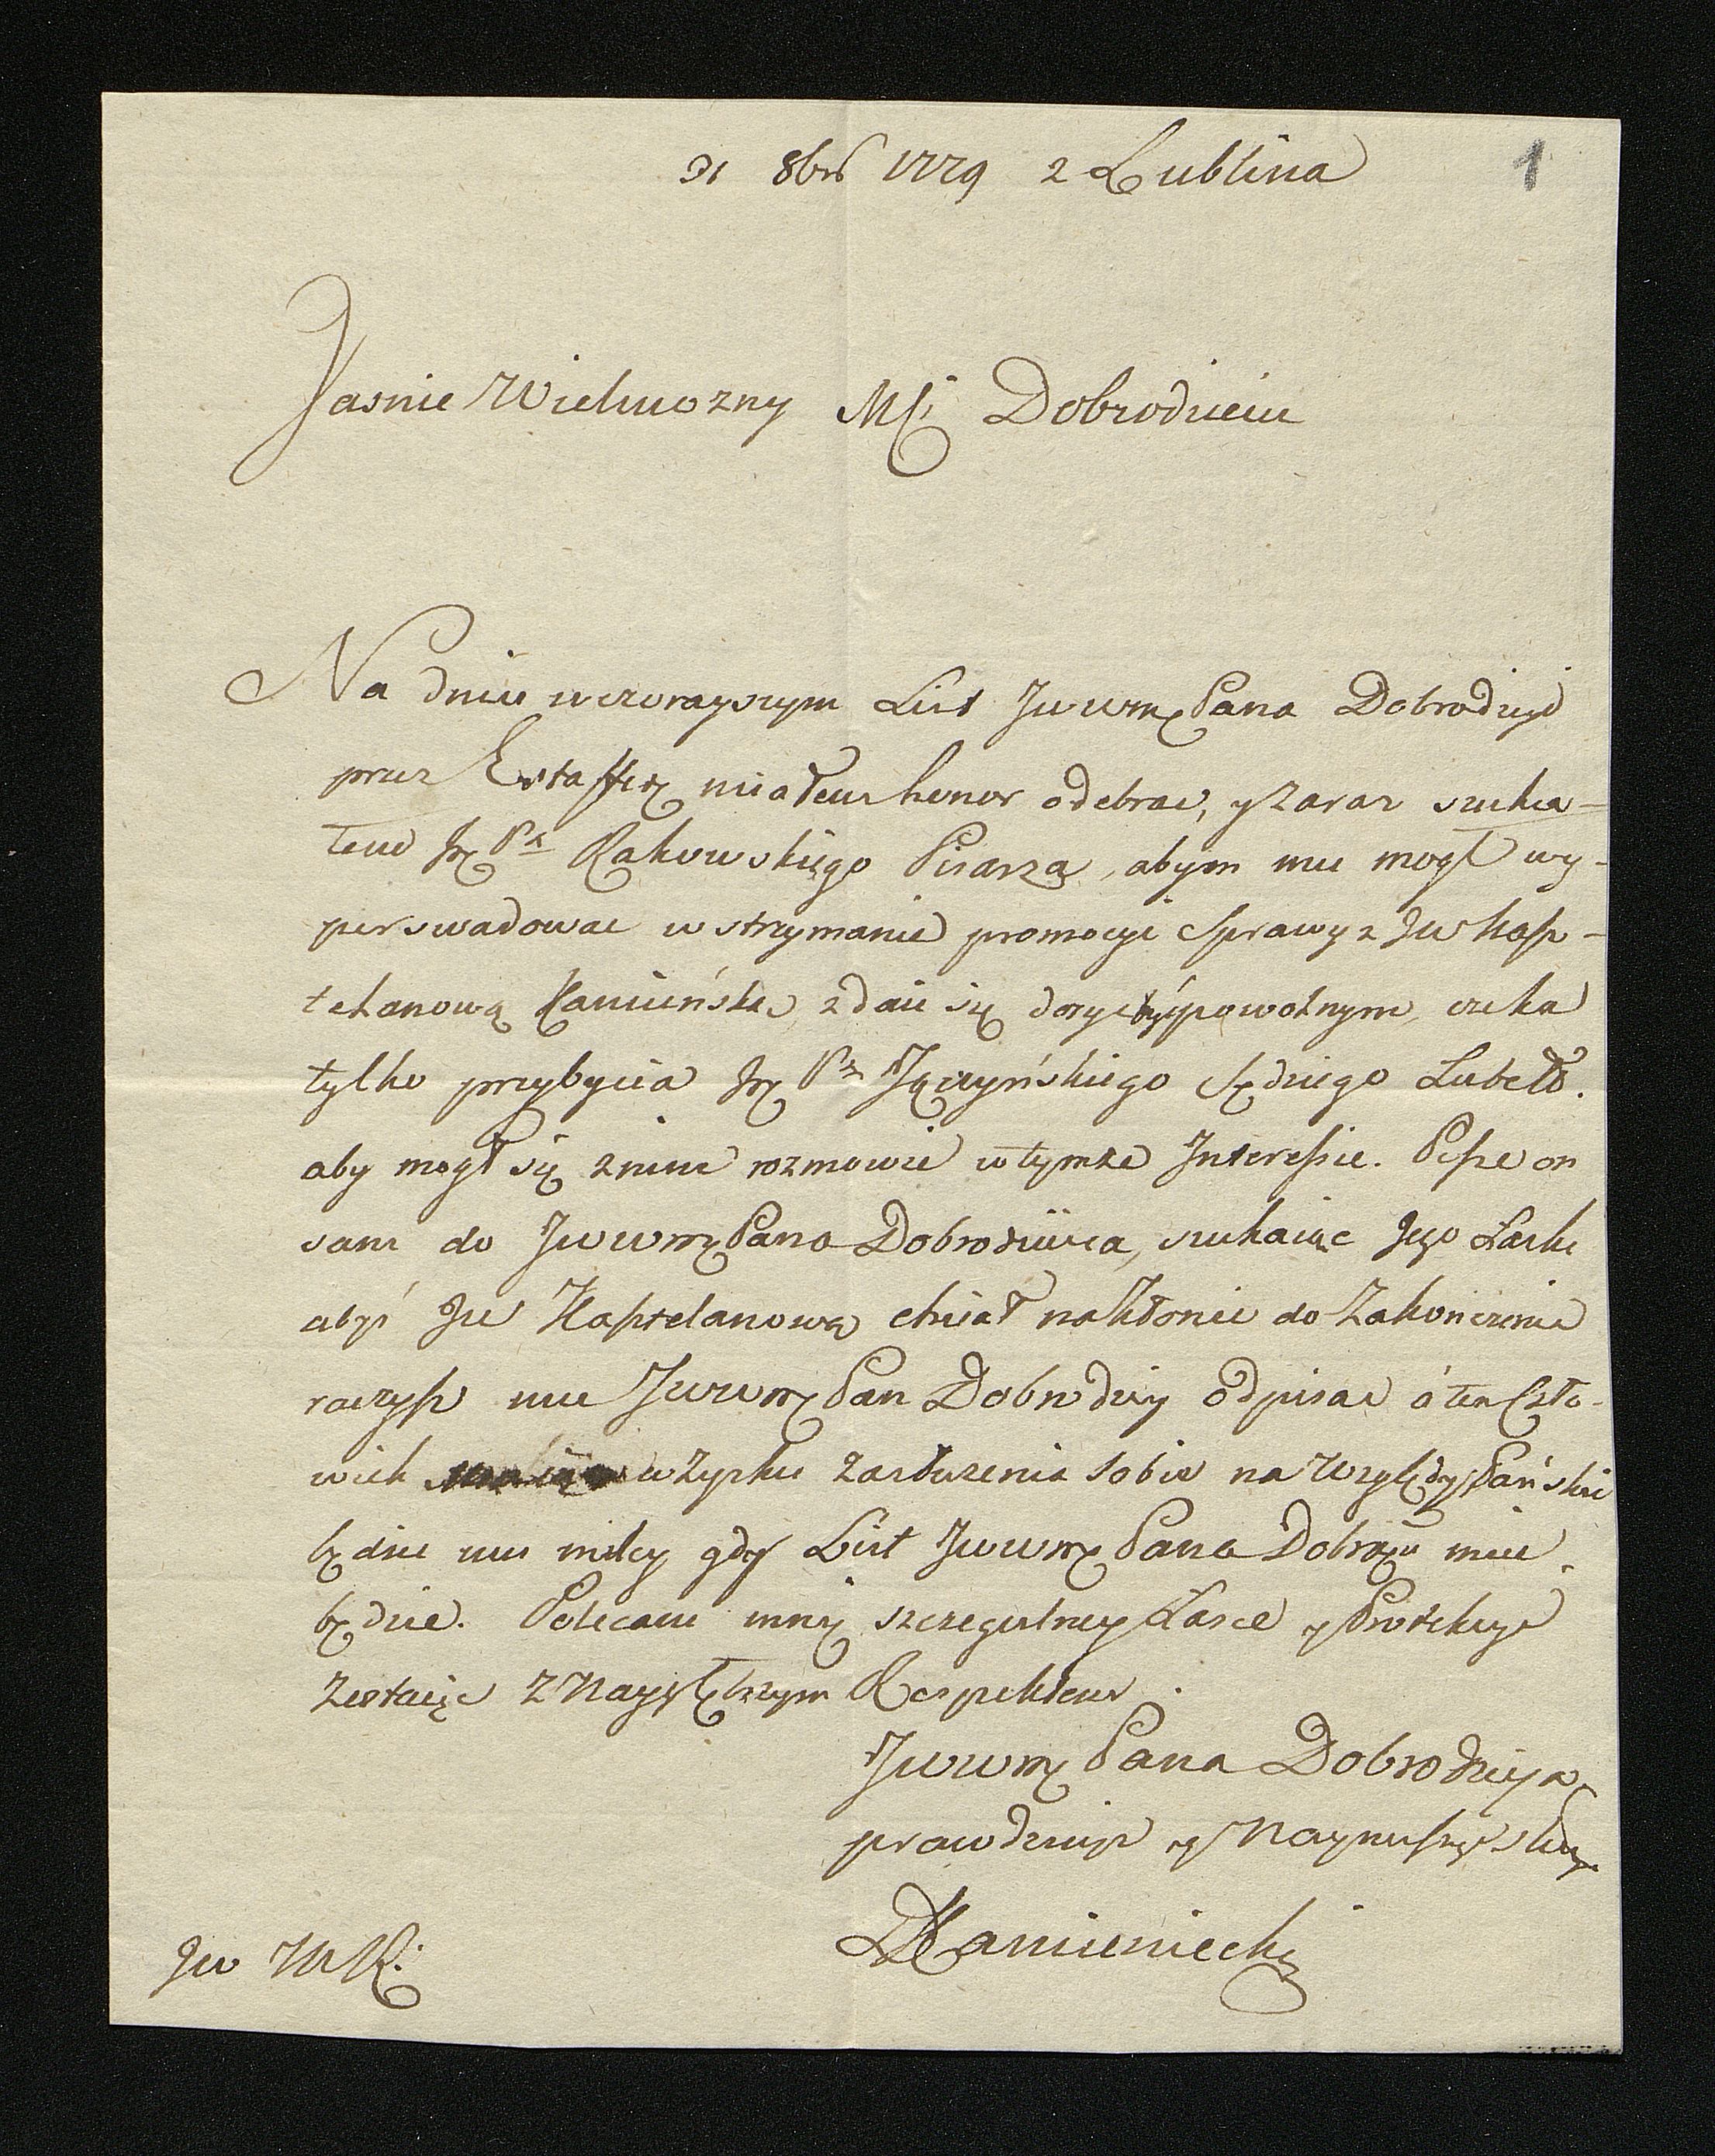 31 8bris 1779 z Lublina
1
Jasnie Wielmozny Mci Dobrodzieiu
Na dniu wczorayszym List JWWMc Pana Dobrodzieia
przez Estaffetę miałem honor odebrać, y zaraz szuka-
łem Jmc Pa Rakowskiego Pisarza, abym mu mogł wy-
perswadowac wstrzymanie promocyi Sprawy z JW Kasz-
telanową Kamieńską zdaie się dosyć być powolnym, czeka
tylko przybycia Jmc Pa Jączyńskiego Sędziego
aby mogł się znim rozmowić w tymże Interessie. Pisze on
sam do JWWMc Pana Dobrodzieia, szukaiąc Jego Łaski
abyś JW Kasztelanową chciał nakłonić do Zakończenia
raczysz mu JWWMc Pan Dobrodziey odpisać, a ten Czło-
wiek w Zysku zasłużenia sobie na Względy Pańskie
będzie mu miley gdy List JWWMc Pana Dobrodzieia mieć
będzie. Polecam mnie szczegulney Łasce y Protekcyi
Zostaiąc Z Naygłębszym Respektem.
JWWMc Pana Dobrodzieia
prawdziwym y Nayniższym sługą
DKamieniecki
JW